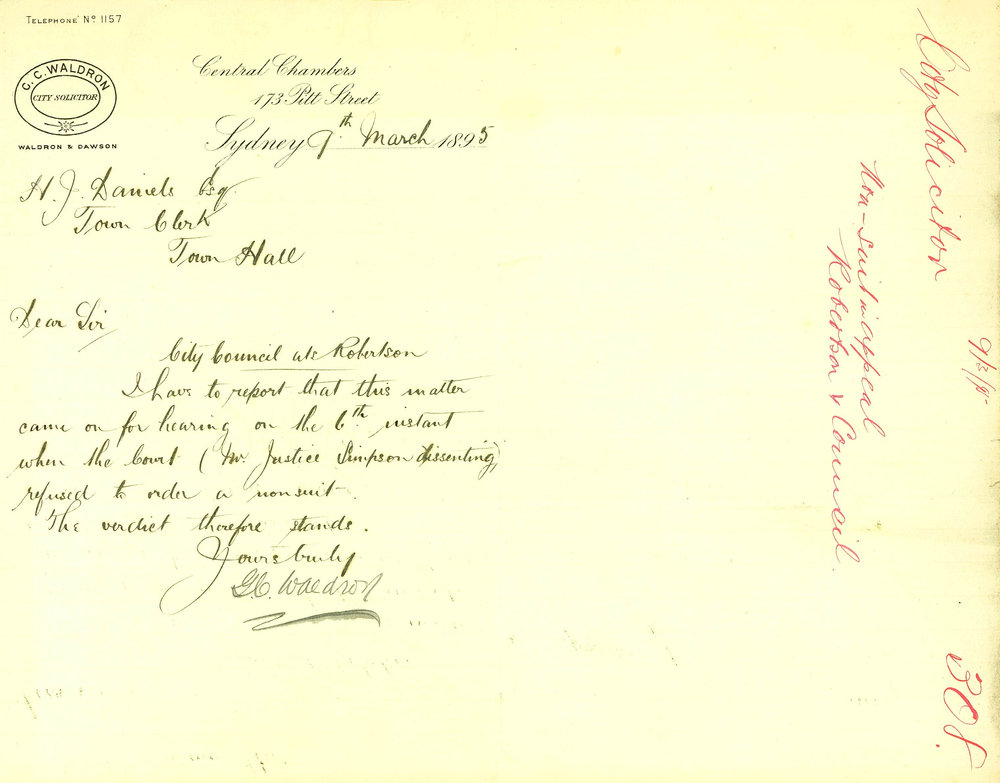 TELEPHONE Nº 1157
G. C. WALDRON
CITY SOLICITOR
WALDRON & DAWSON
Central Chambers
173 Pitt Street
Sydney 9th March 1895
H. J. Daniels Esq.
Town Clerk
Town Hall
Dear Sir
City Council ats Robertson
I have to report that this matter
came on for hearing on the 6th instant
when the Court (Mr. Justice Simpson dissenting)
refused to order a nonsuit.
The verdict therefore stands.
Yours truly
G.C. Waldron
City Solicitor
9/3/95
Non-suit in appeal
Robertson v Council.
308.